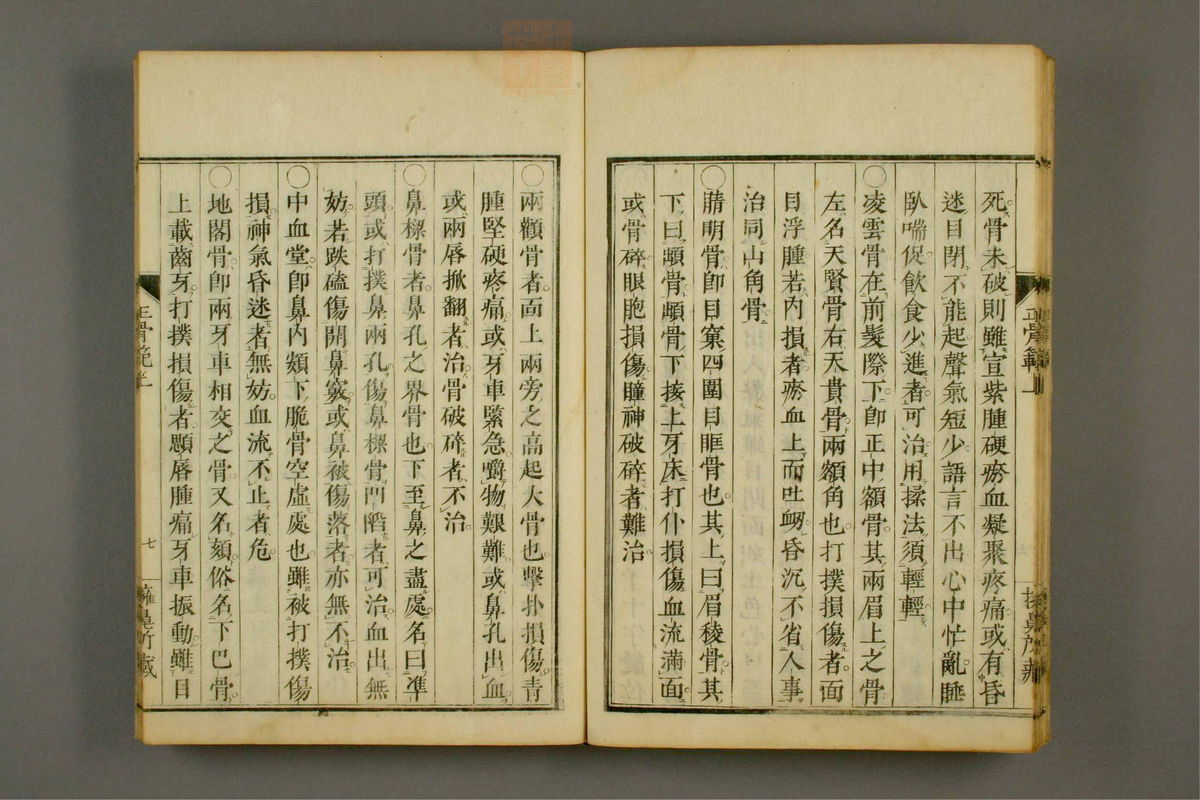 死骨未破則雖宣紫腫硬瘀血凝聚疼痛或有昏
迷目閉不能起聲氣短少語言不出心中忙亂睡
臥喘促飲食少進者可治用揉法須輕輕
○凌雲骨在前髮際下卽正中額骨其兩眉上之骨
左名天賢骨右天貴骨兩額角也打撲損傷者面
目浮腫若內損者瘀血上而吐衂昏沉不省人事
治同山角骨
○睛明骨卽目窠四圍目眶骨也其上曰眉稜骨其
下曰䪼骨䪼骨下接上牙床打仆損傷血流滿面
或骨碎眼胞損傷瞳神破碎者難治
正骨範 上
○兩顴骨者面上兩旁之高起大骨也擊扑損傷青
腫堅硬疼痛或牙車緊急嚼物艱難或鼻孔出血
或兩唇掀翻者治骨破碎者不治
○鼻樑骨者鼻孔之界骨也下至鼻之盡處名曰凖
頭或打撲鼻兩孔傷鼻樑骨凹陷者可治血出無
妨若跌磕傷開鼻竅或鼻被傷落者亦無不治
○中血堂卽鼻內頞下脆骨空虛處也雖被打撲傷
損神氣昏迷者無妨血流不止者危
○地閣骨卽兩牙車相交之骨又名頦俗名下巴骨
上載齒牙打撲損傷者顋唇腫痛牙車振動雖目
正骨範 上
七